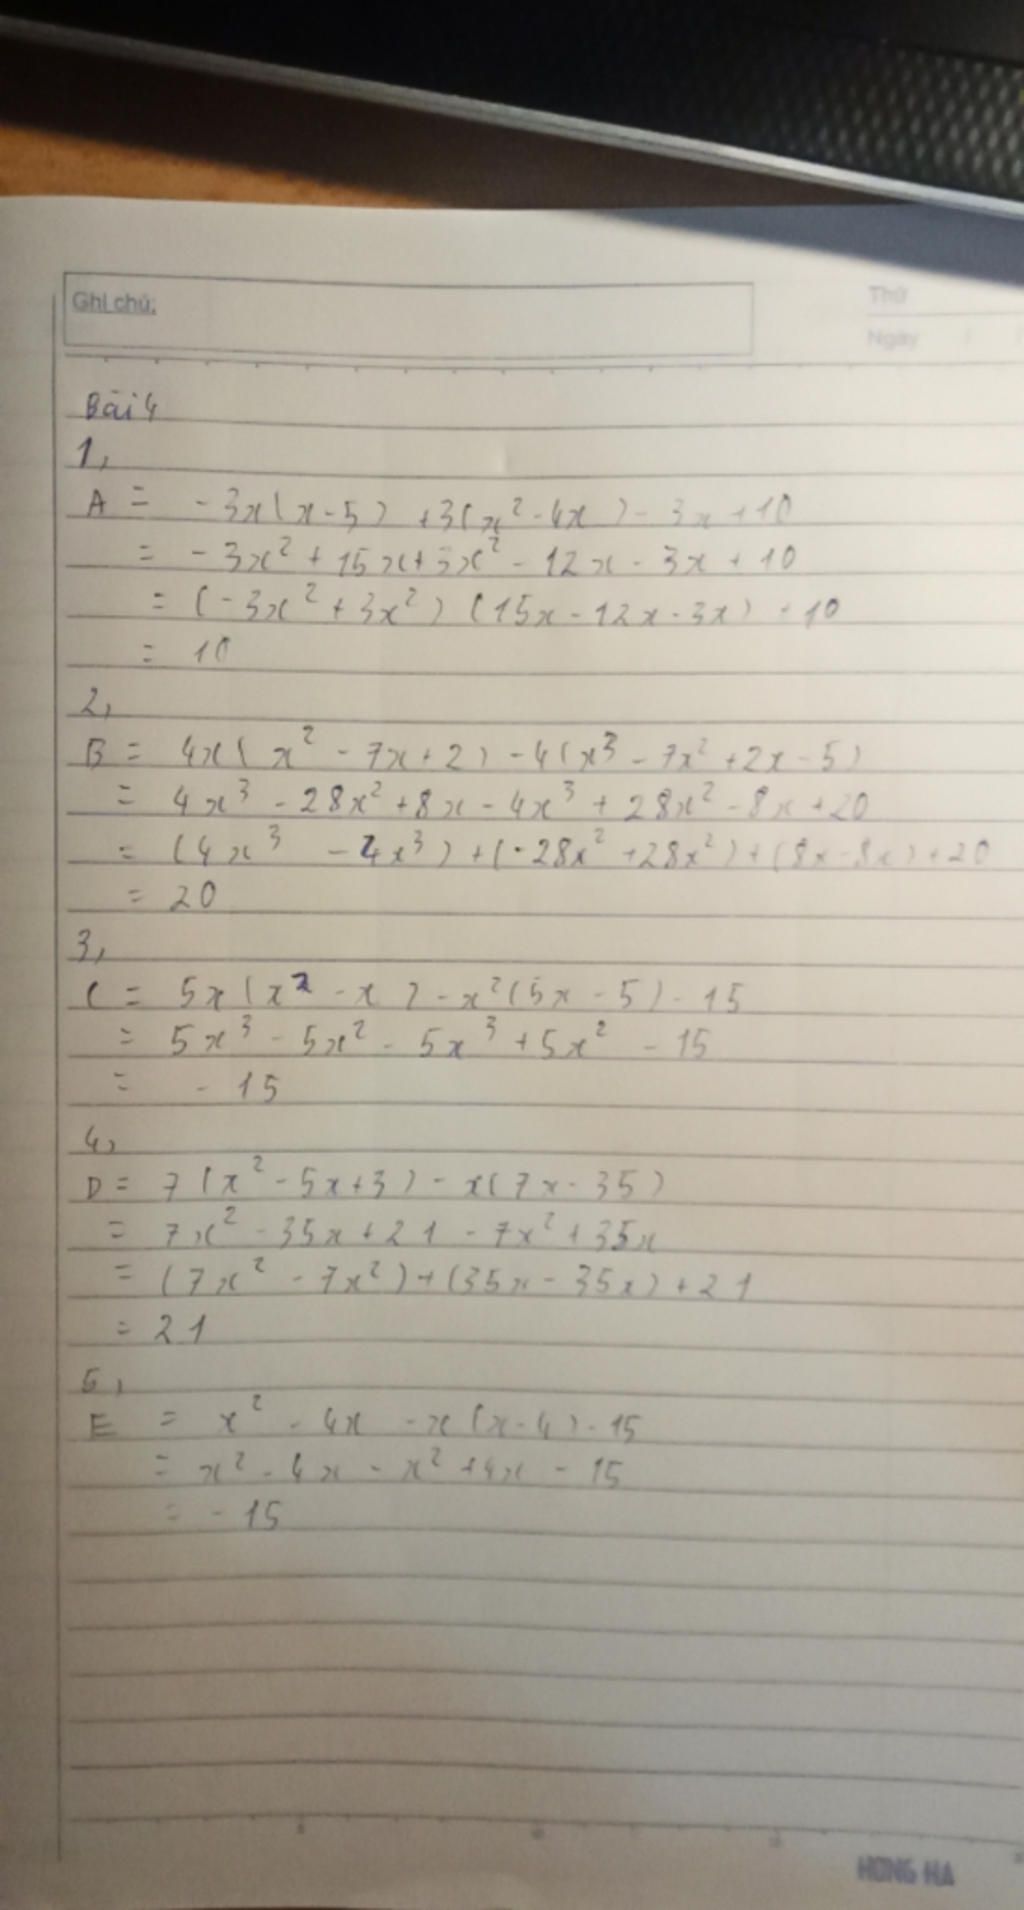 Ghi chú:
Thứ
Ngày
Bài 4
1,
A = -3x(x-5) +3(x²-4x)-3x+10
= -3x²+15x+3x²-12x-3x+10
= (-3x²+3x²) (15x-12x-3x)+10
= 10
2,
B = 4x(x²-7x+2)-4(x³-7x²+2x-5)
= 4x³-28x²+8x-4x³+28x²-8x+20
= (4x³-4x³)+(-28x²+28x²)+(8x-8x)+20
= 20
3,
C = 5x(x²-x)-x²(5x-5)-15
= 5x³-5x²-5x³+5x²-15
= -15
4,
D = 7(x²-5x+3)-x(7x-35)
= 7x²-35x+21-7x²+35x
= (7x²-7x²)+(35x-35x)+21
= 21
5,
E = x²-4x-x(x-4)-15
= x²-4x-x²+4x-15
= -15
HONG HA